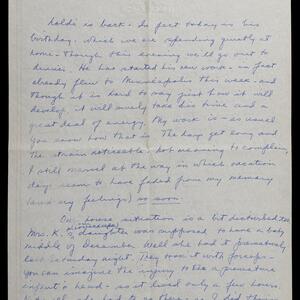 holds is back - In fact today is his
birthday. Which we are spending quietly at
home - though this evening we'll go over to
dennies. He has started his new work - in fact
already flew to Minneapolis this week - and
though it is hard to say just how it will
develop, it will surely take his time and a
great deal of energy. My work is - as usual
you know how that is. The days get long and
the strain noticeable - not meaning to complain,
I still marvel at the way in which vacation
days seem to have faded from my memory
(and my feelings) so soon.
Our house situation is a bit disturbed too
Mrs. K.'s (housekeeper) daughter was supposed to have a baby
middle of December. Well she had it prematurely
last Saturday night. They took it with forceps -
you can imagine the injury to like a premature
infant's head - so it lived only a few hours.